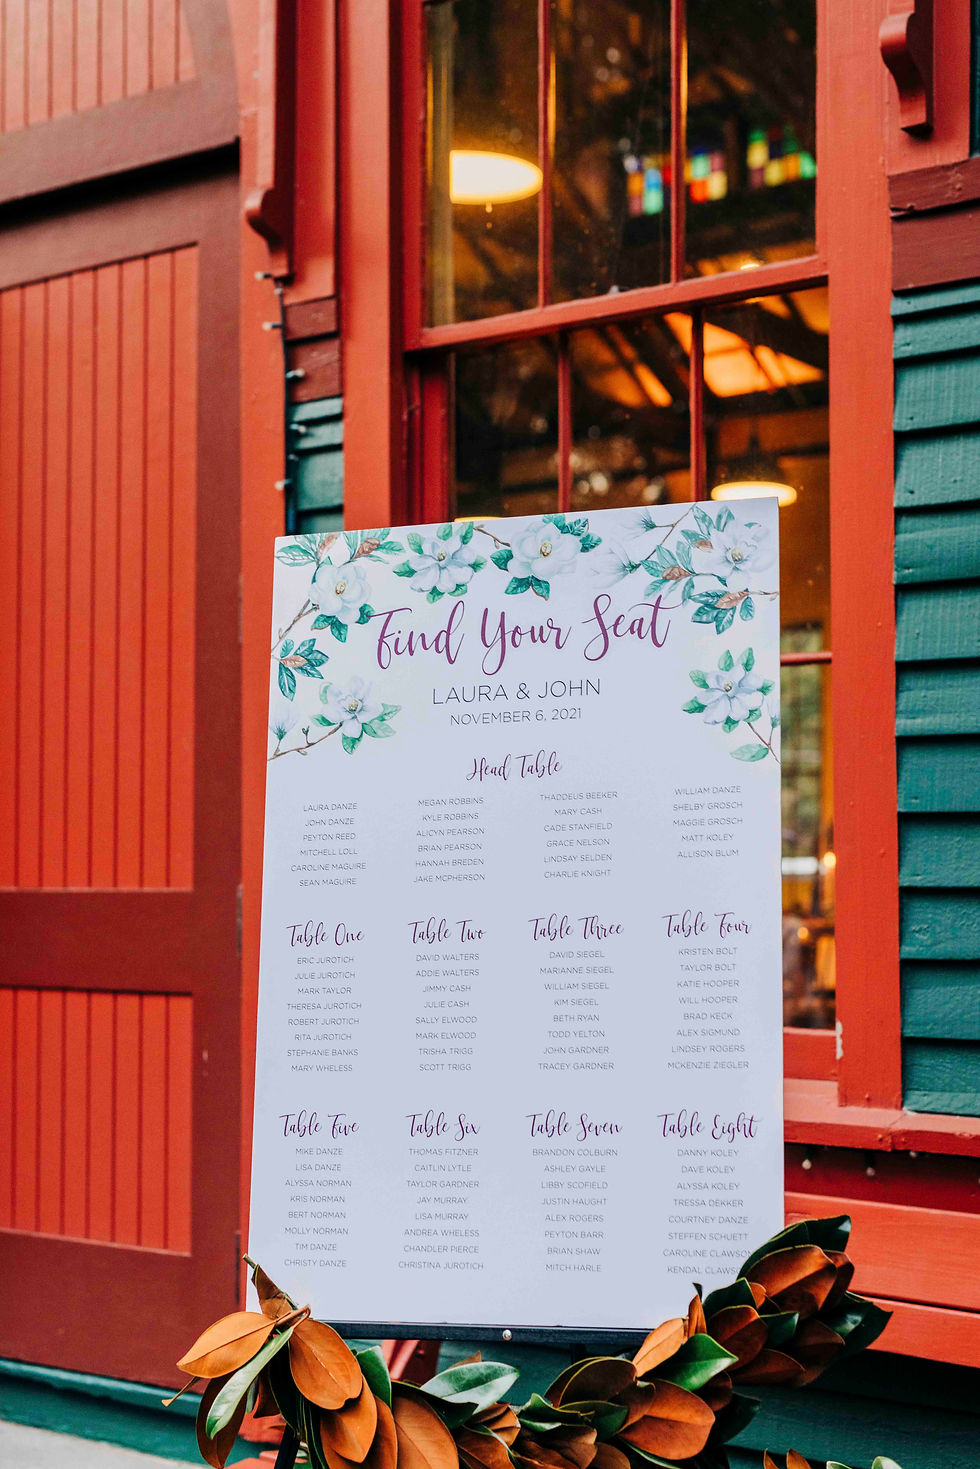 Find Your Seat
LAURA & JOHN
NOVEMBER 6, 2021
Head Table
LAURA DANZE
JOHN DANZE
PEYTON REED
MITCHELL LOLL
CAROLINE MAGUIRE
SEAN MAGUIRE
MEGAN ROBBINS
KYLE ROBBINS
ALICYN PEARSON
BRIAN PEARSON
HANNAH BREDEN
JAKE MCPHERSON
THADDEUS BEEKER
MARY CASH
CADE STANFIELD
GRACE NELSON
LINDSAY SELDEN
CHARLIE KNIGHT
WILLIAM DANZE
SHELBY GROSCH
MAGGIE GROSCH
MATT KOLEY
ALLISON BLUM
Table One
ERIC JUROTICH
JULIE JUROTICH
MARK TAYLOR
THERESA JUROTICH
ROBERT JUROTICH
RITA JUROTICH
STEPHANIE BANKS
MARY WHELESS
Table Two
DAVID WALTERS
ADDIE WALTERS
JIMMY CASH
JULIE CASH
SALLY ELWOOD
MARK ELWOOD
TRISHA TRIGG
SCOTT TRIGG
Table Three
DAVID SIEGEL
MARIANNE SIEGEL
WILLIAM SIEGEL
KIM SIEGEL
BETH RYAN
TODD YELTON
JOHN GARDNER
TRACEY GARDNER
Table Four
KRISTEN BOLT
TAYLOR BOLT
KATIE HOOPER
WILL HOOPER
BRAD KECK
ALEX SIGMUND
LINDSEY ROGERS
MCKENZIE ZIEGLER
Table Five
MIKE DANZE
LISA DANZE
ALYSSA NORMAN
KRIS NORMAN
BERT NORMAN
MOLLY NORMAN
TIM DANZE
CHRISTY DANZE
Table Six
THOMAS FITZNER
CAITLIN LYTLE
TAYLOR GARDNER
JAY MURRAY
LISA MURRAY
ANDREA WHELESS
CHANDLER PIERCE
CHRISTINA JUROTICH
Table Seven
BRANDON COLBURN
ASHLEY GAYLE
LIBBY SCOFIELD
JUSTIN HAUGHT
ALEX ROGERS
PEYTON BARR
BRIAN SHAW
MITCH HARLE
Table Eight
DANNY KOLEY
DAVE KOLEY
ALYSSA KOLEY
TRESSA DEKKER
COURTNEY DANZE
STEFFEN SCHUETT
CAROLINE CLAWSON
KENDAL CLAWS